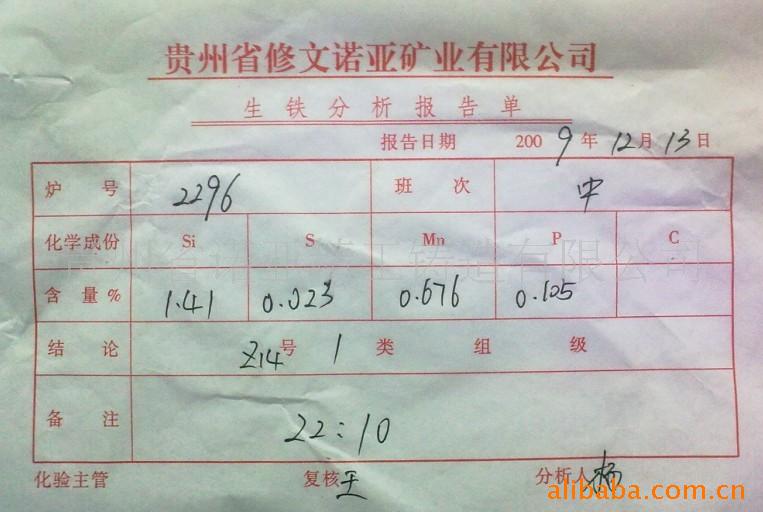 贵州省修文诺亚矿业有限公司
生铁分析报告单
报告日期 2009年12月13日
炉号 2296 班次 中
化学成份 Si S Mn P C
含量% 1.41 0.023 0.676 0.105
结论 Z14号 1 类 组 级
备注 22:10
化验主管 复核 王 分析人 杨
alibaba.com.cn